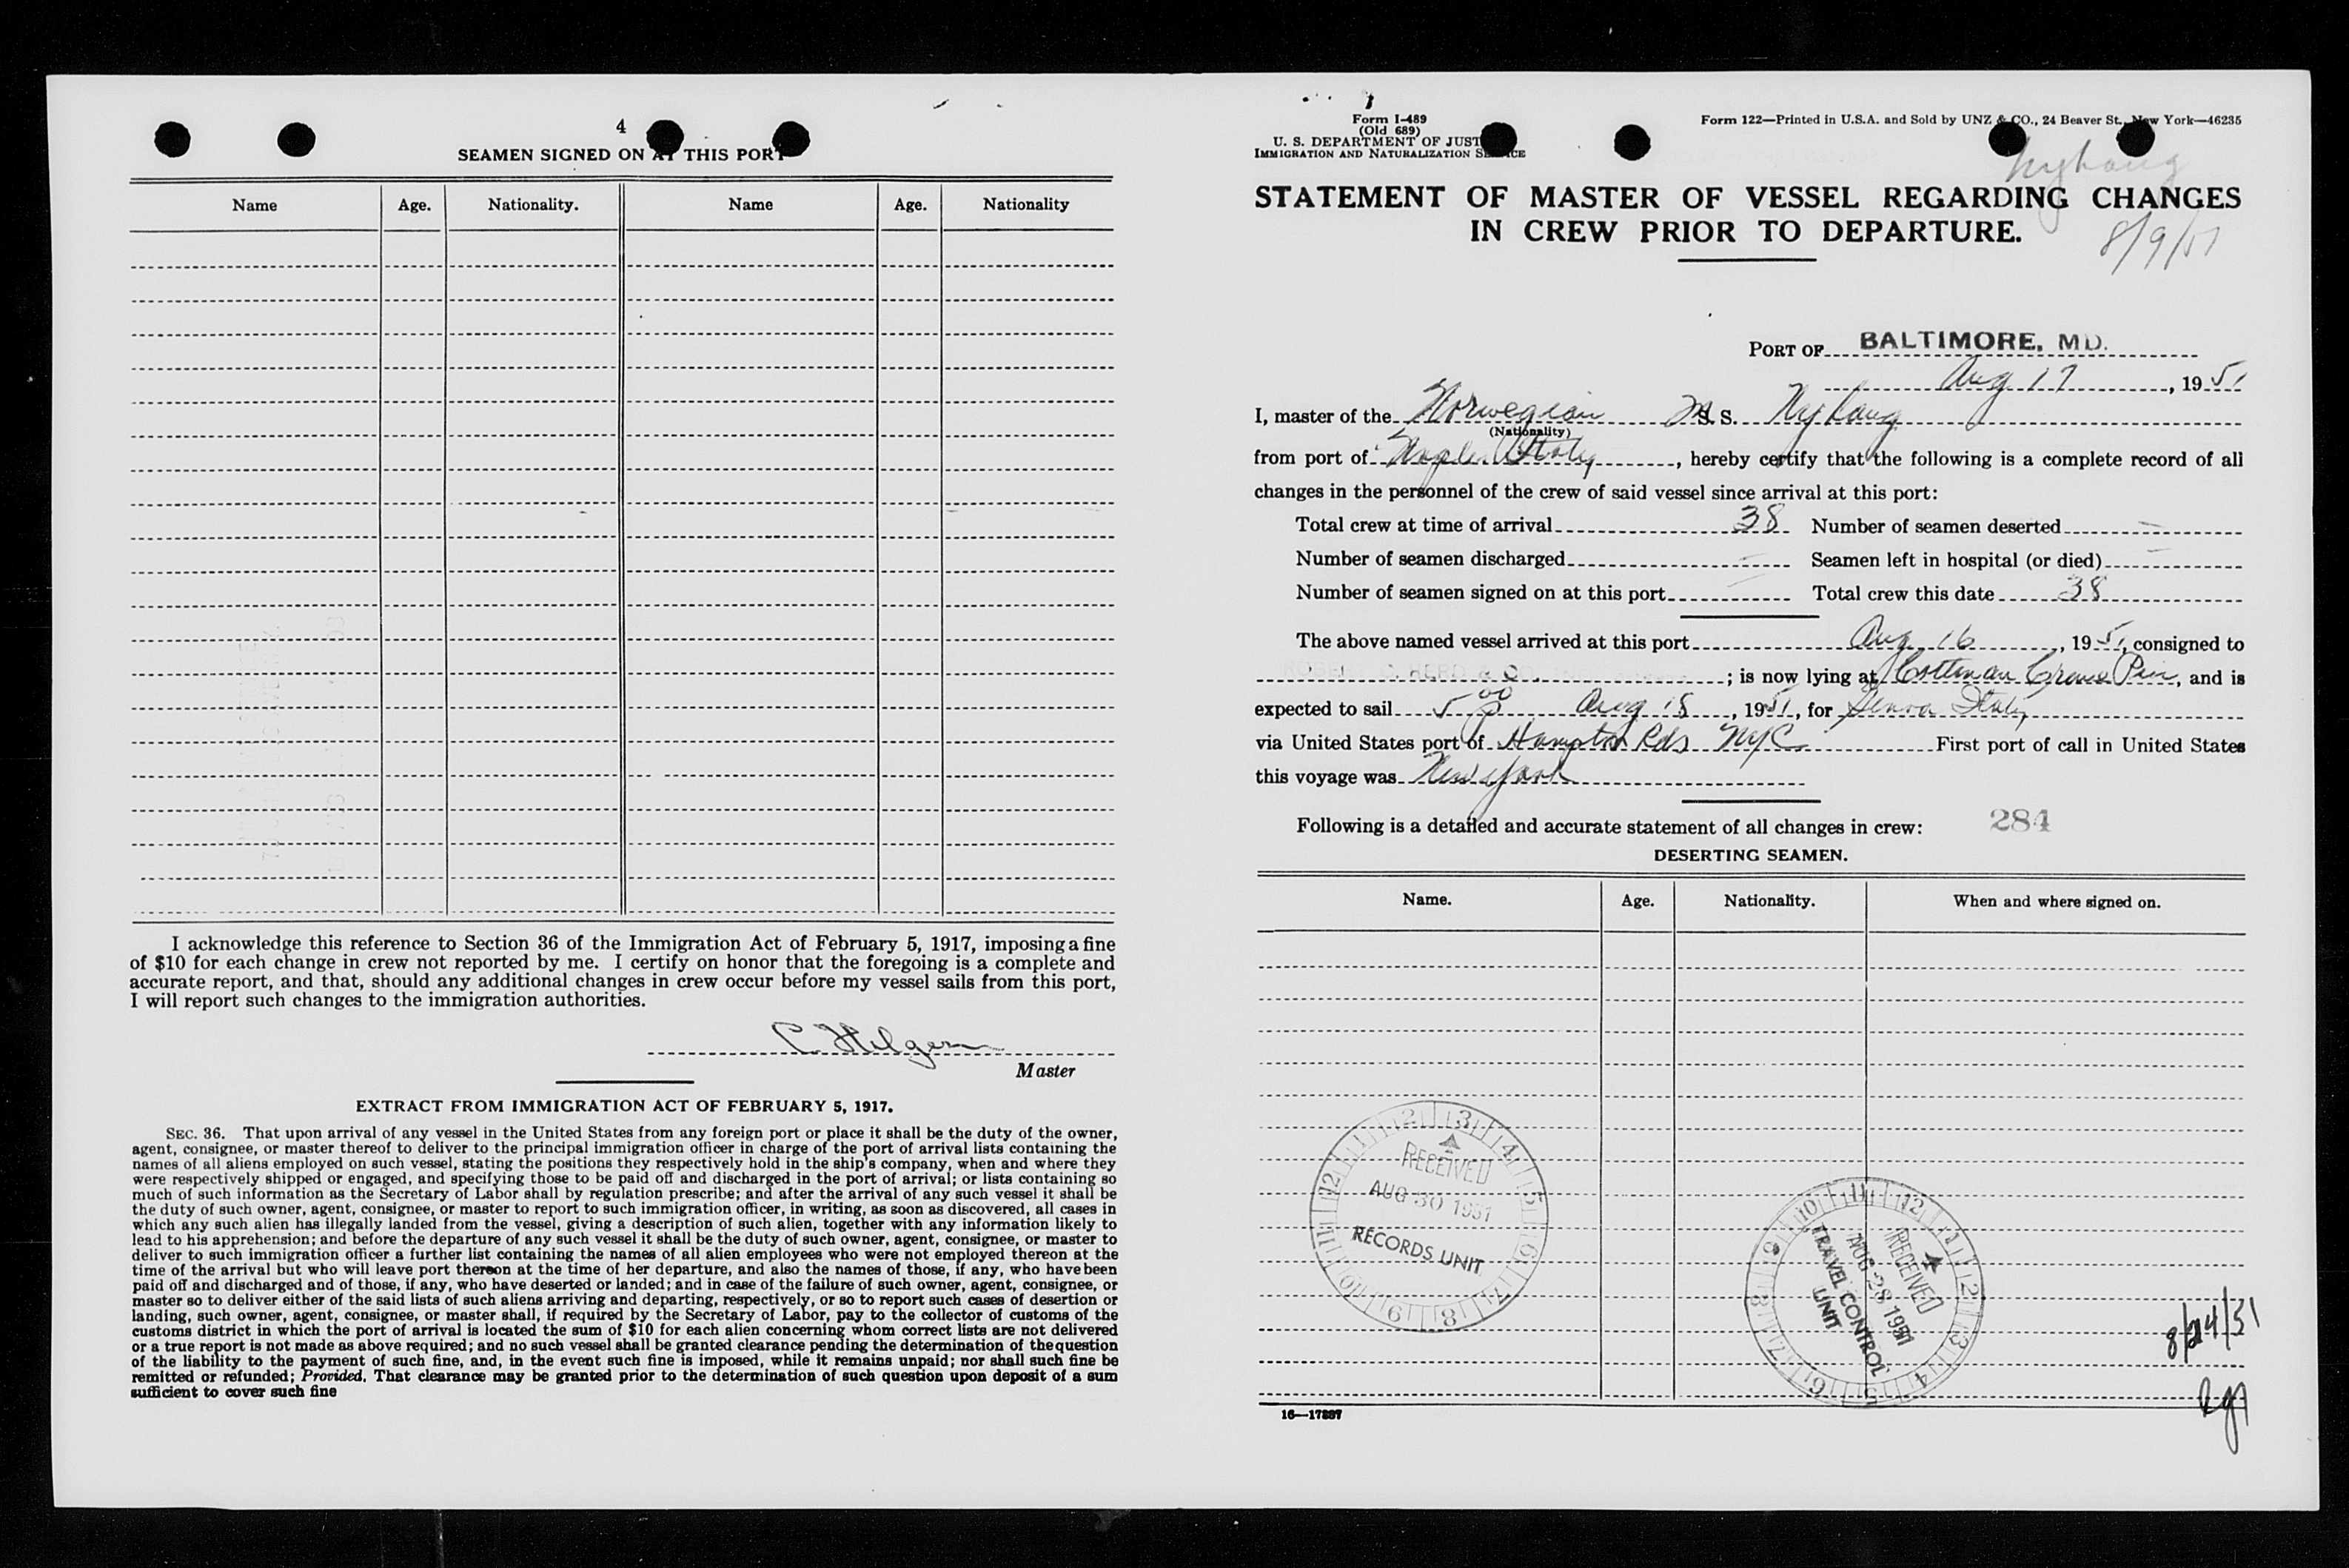 4
SEAMEN SIGNED ON AT THIS PORT
Name Age. Nationality. Name Age. Nationality
I acknowledge this reference to Section 36 of the Immigration Act of February 5, 1917, imposing a fine
of $10 for each change in crew not reported by me. I certify on honor that the foregoing is a complete and
accurate report, and that, should any additional changes in crew occur before my vessel sails from this port,
I will report such changes to the immigration authorities.
C. Helgesen
Master
EXTRACT FROM IMMIGRATION ACT OF FEBRUARY 5, 1917.
SEC. 36. That upon arrival of any vessel in the United States from any foreign port or place it shall be the duty of the owner,
agent, consignee, or master thereof to deliver to the principal immigration officer in charge of the port of arrival lists containing the
names of all aliens employed on such vessel, stating the positions they respectively hold in the ship's company, when and where they
were respectively shipped or engaged, and specifying those to be paid off and discharged in the port of arrival; or lists containing so
much of such information as the Secretary of Labor shall by regulation prescribe; and after the arrival of any such vessel it shall be
the duty of such owner, agent, consignee, or master to report to such immigration officer, in writing, as soon as discovered, all cases in
which any such alien has illegally landed from the vessel, giving a description of such alien, together with any information likely to
lead to his apprehension; and before the departure of any such vessel it shall be the duty of such owner, agent, consignee, or master to
deliver to such immigration officer a further list containing the names of all alien employees who were not employed thereon at the
time of the arrival but who will leave port thereon at the time of her departure, and also the names of those, if any, who have been
paid off and discharged and of those, if any, who have deserted or landed; and in case of the failure of such owner, agent, consignee, or
master so to deliver either of the said lists of such aliens arriving and departing, respectively, or so to report such cases of desertion or
landing, such owner, agent, consignee, or master shall, if required by the Secretary of Labor, pay to the collector of customs of the
customs district in which the port of arrival is located the sum of $10 for each alien concerning whom correct lists are not delivered
or a true report is not made as above required; and no such vessel shall be granted clearance pending the determination of the question
of the liability to the payment of such fine, and, in the event such fine is imposed, while it remains unpaid; nor shall such fine be
remitted or refunded; Provided, That clearance may be granted prior to the determination of such question upon deposit of a sum
sufficient to cover such fine
Form I-489
(Old 689)
U. S. DEPARTMENT OF JUST
IMMIGRATION AND NATURALIZATION SERVICE
Form 122—Printed in U.S.A. and Sold by UNZ & CO., 24 Beaver St., New York—46235
Nyhaug
STATEMENT OF MASTER OF VESSEL REGARDING CHANGES
IN CREW PRIOR TO DEPARTURE.
8/9/51
PORT OF BALTIMORE, MD.
Aug 17, 1951
I, master of the Norwegian M. S. Nyhaug
(Nationality)
from port of Naples Italy, hereby certify that the following is a complete record of all
changes in the personnel of the crew of said vessel since arrival at this port:
Total crew at time of arrival 38 Number of seamen deserted —
Number of seamen discharged — Seamen left in hospital (or died) —
Number of seamen signed on at this port — Total crew this date 38
The above named vessel arrived at this port Aug 16, 1951, consigned to
; is now lying at Cottman Crane Pier, and is
expected to sail 5 00 P Aug 18, 1951, for Genoa Italy
via United States port of Hampton Rds NYC First port of call in United States
this voyage was New York
Following is a detailed and accurate statement of all changes in crew: 284
DESERTING SEAMEN.
Name. Age. Nationality. When and where signed on.
RECEIVED
AUG 30 1951
RECORDS UNIT
RECEIVED
AUG 28 1951
TRAVEL CONTROL
UNIT
8/24/51
16—17397